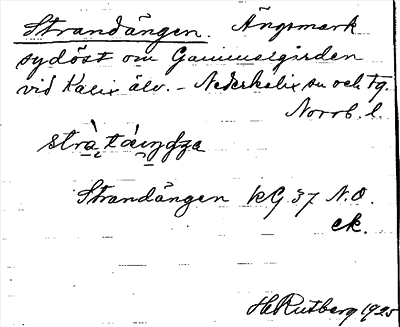 Strandängen. Ängsmark
sydöst om Gammelgården
vid Kalix älv. - Nederkalix sn och tg.
Norrb. l.
Strandängen KG 37 N.O.
ek.
H Rutberg 1925